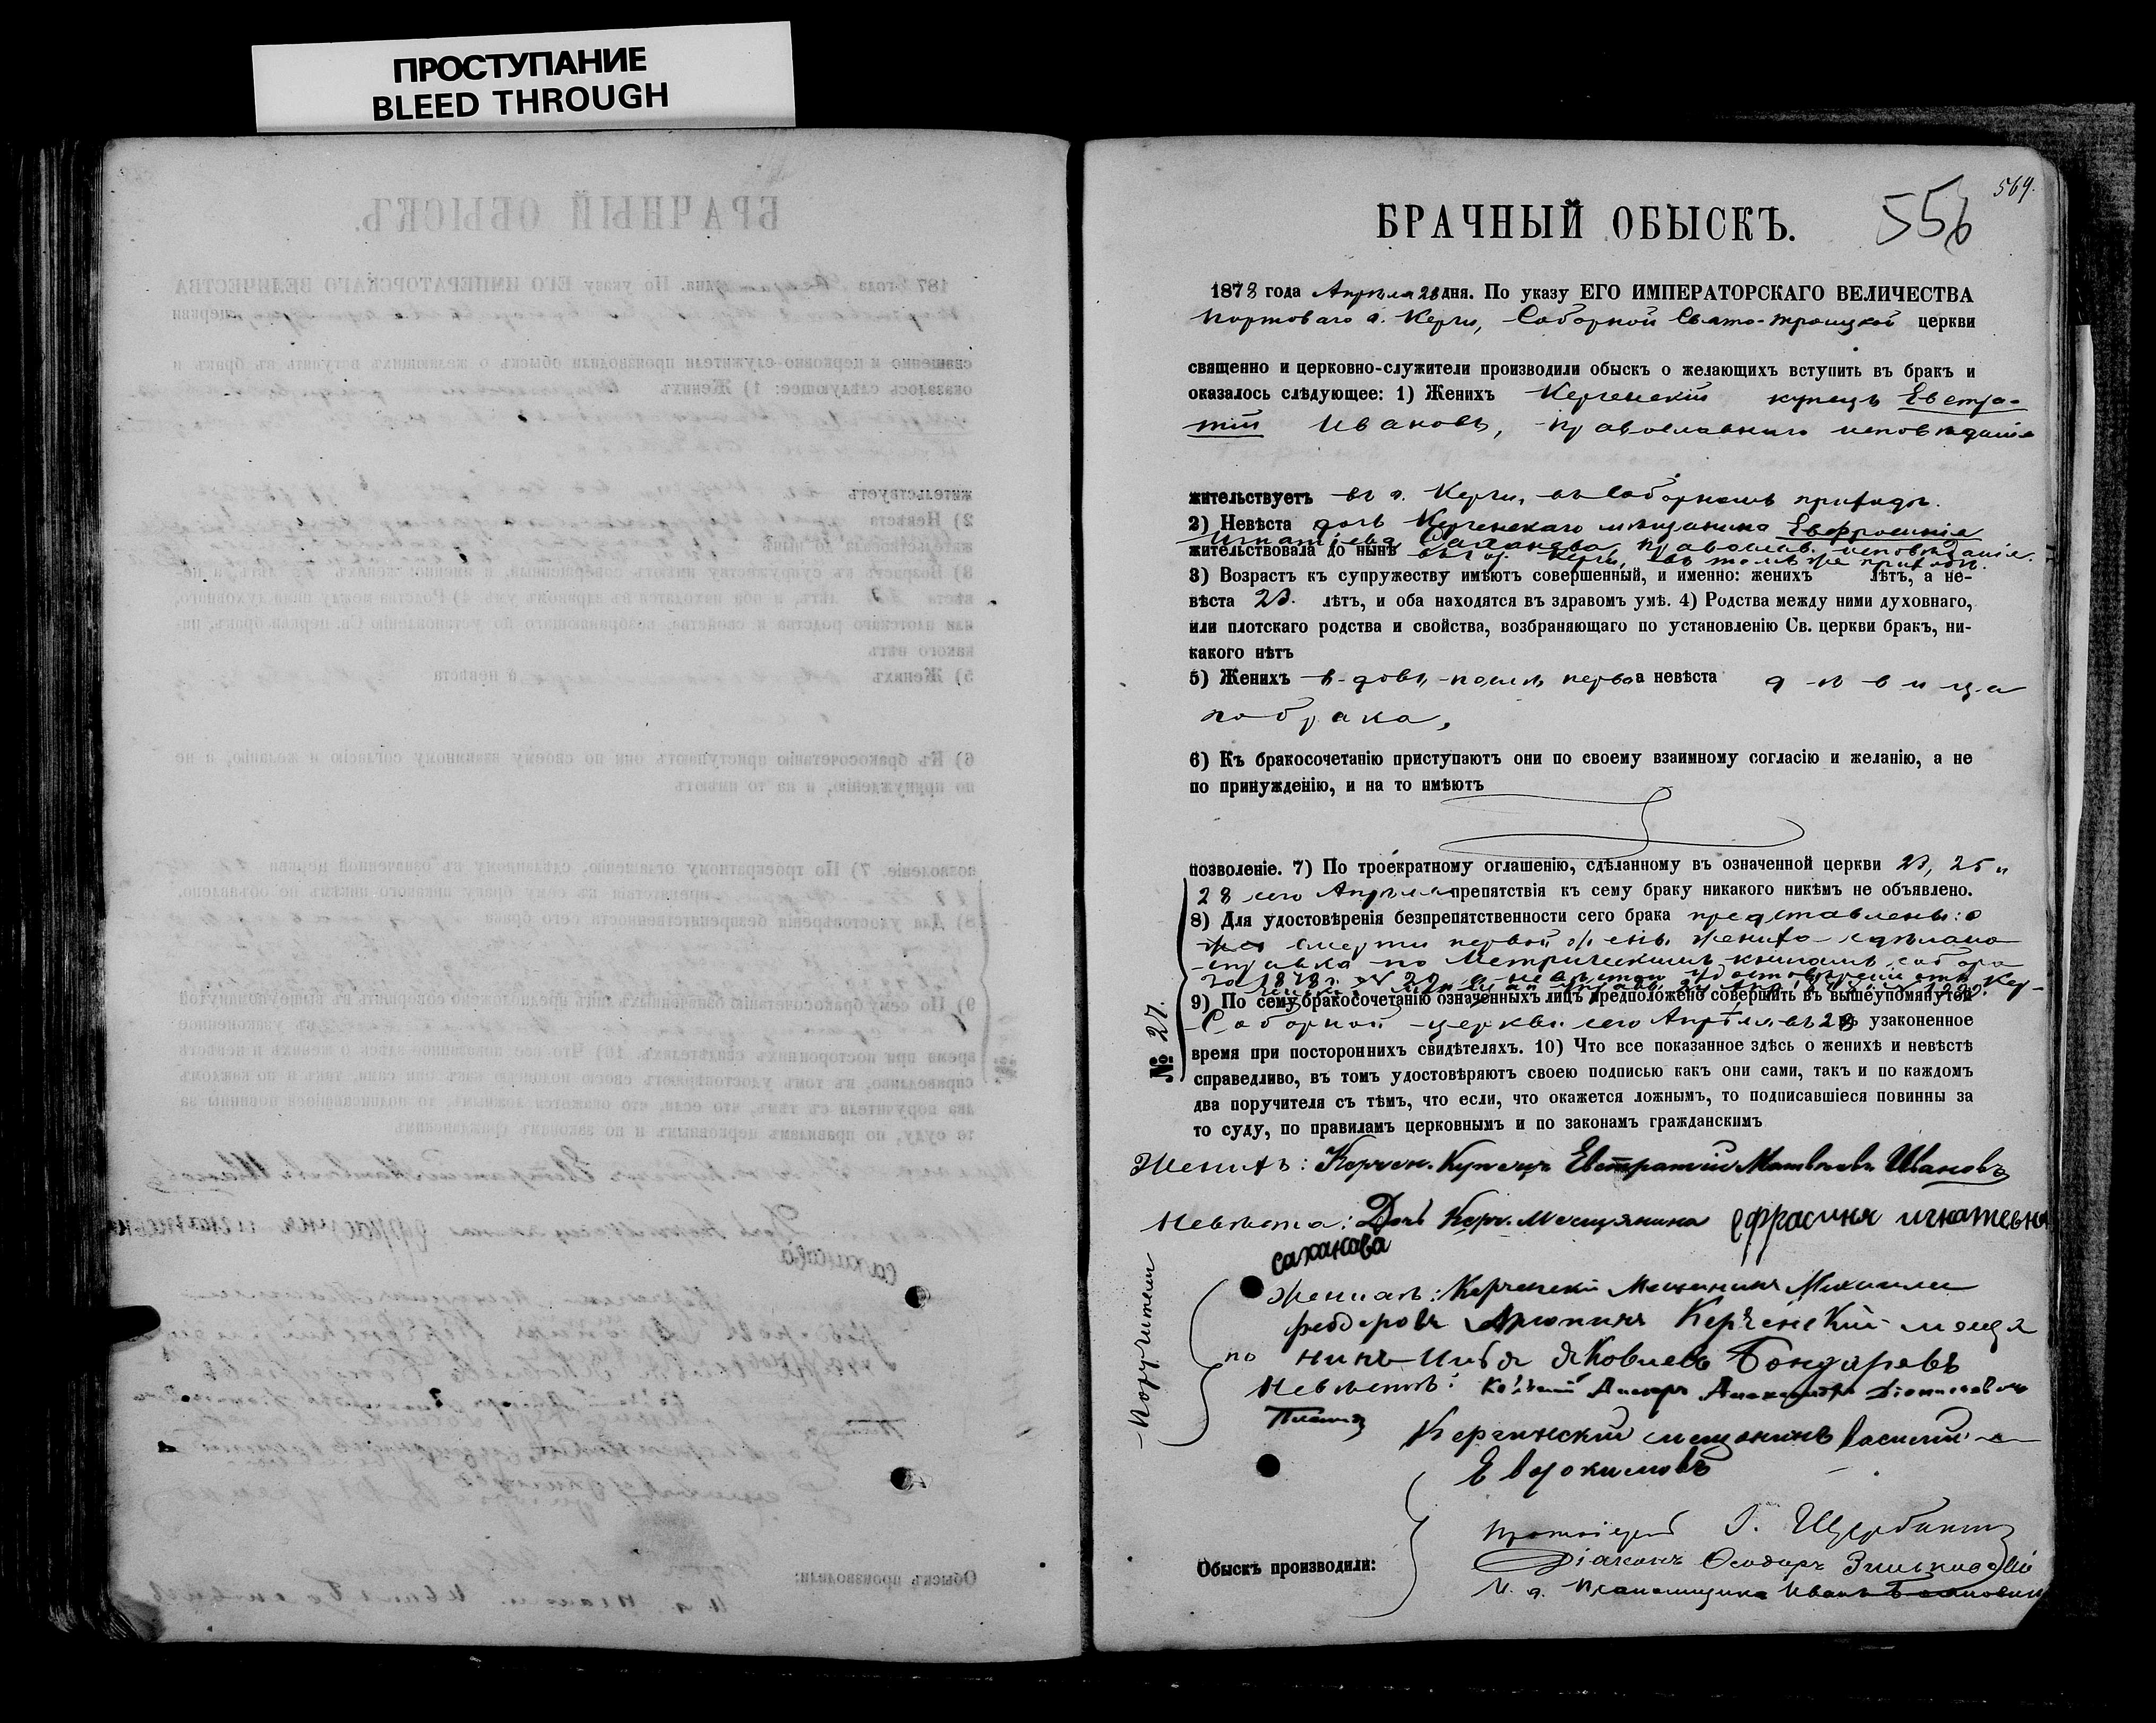 ПРОСТУПАНИЕ
BLEED THROUGH
569.
556
БРАЧНЫЙ ОБЫСКЪ.
1878 года Апрѣля 28 дня. По указу ЕГО ИМПЕРАТОРСКАГО ВЕЛИЧЕСТВА
Портоваго г. Керчи, Соборной Свято-Троицкой церкви
священно и церковно-служители производили обыскъ о желающихъ вступить въ бракъ и
оказалось слѣдующее: 1) Женихъ Керченскій купецъ Евстра-
тій Ивановъ, православнаго исповѣданія
жительствуетъ въ г. Керчи, въ Соборномъ приходѣ.
2) Невѣста дочь Керченскаго мѣщанина Евфросинія
Игнатіева Саханова, православ. исповѣданія
жительствовала до нынѣ въ г. Керчи, въ томъ же приходѣ.
3) Возрастъ къ супружеству имѣютъ совершенный, и именно: женихъ лѣтъ, а не-
вѣста 23. лѣтъ, и оба находятся въ здравомъ умѣ. 4) Родства между ними духовнаго,
или плотскаго родства и свойства, возбраняющаго по установленію Св. церкви бракъ, ни-
какого нѣтъ
5) Женихъ вдовъ послѣ перва а невѣста дѣвица
го брака,
6) Къ бракосочетанію приступаютъ они по своему взаимному согласію и желанію, а не
по принужденію, и на то имѣютъ
позволеніе. 7) По троекратному оглашенію, сдѣланному въ означенной церкви 23, 25 и
28 сего Апрѣля препятствія къ сему браку никакого никѣмъ не объявлено.
8) Для удостовѣренія безпрепятственности сего брака представлены: о
смерти первой жены жениха сдѣлана
справка по Метрическимъ книгамъ собора
за 1878 г. № 20, а невѣстою удостовѣреніе отъ Кер-
9) По сему бракосочетанію означенныхъ лицъ предположено совершить въ вышеупомянутой
Соборной церкви сего Апрѣля въ 28 узаконенное
№ 27.
время при постороннихъ свидѣтеляхъ. 10) Что все показанное здѣсь о женихѣ и невѣстѣ
справедливо, въ томъ удостовѣряютъ своею подписью какъ они сами, такъ и по каждомъ
два поручителя съ тѣмъ, что если, что окажется ложнымъ, то подписавшіеся повинны за
то суду, по правиламъ церковнымъ и по законамъ гражданскимъ
Женихъ: Керчен. Купецъ Евстратій Матвѣевъ Ивановъ
Невѣста: Дочь Керч. Мещянина Ефрасиня игнатевна
саханава
Поручители
Женихѣ: Керченскій Мещанинъ Михаилъ
Федоровъ Керченскій меща
по нинъ Илья Яковлевъ Бондаревъ
Невѣстѣ:
Керчинский мещанинъ Василий
Евдокимовъ
Обыскъ производили:
Протоіерей Г. Щербина
Діаконъ Ѳеодоръ
И. д. Псаломщика Иванъ